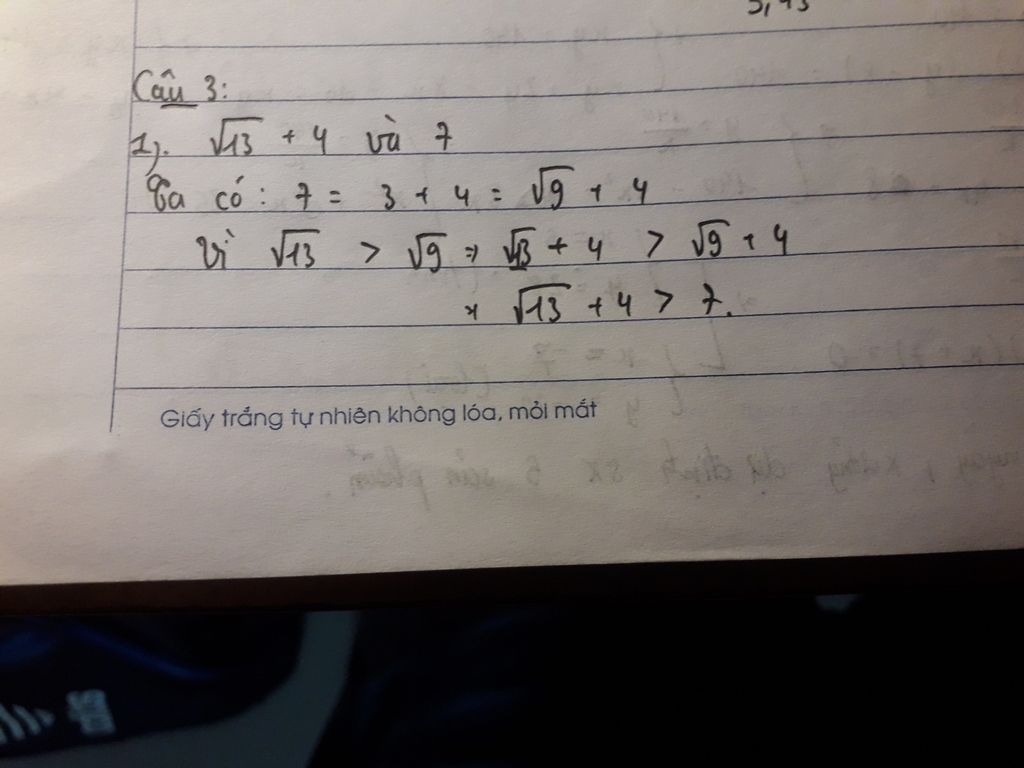 5,45
Câu 3:
1). √13 + 4 và 7
Ta có: 7 = 3 + 4 = √9 + 4
Vì √13 > √9 ⇒ √13 + 4 > √9 + 4
⇒ √13 + 4 > 7.
Giấy trắng tự nhiên không lóa, mỏi mắt